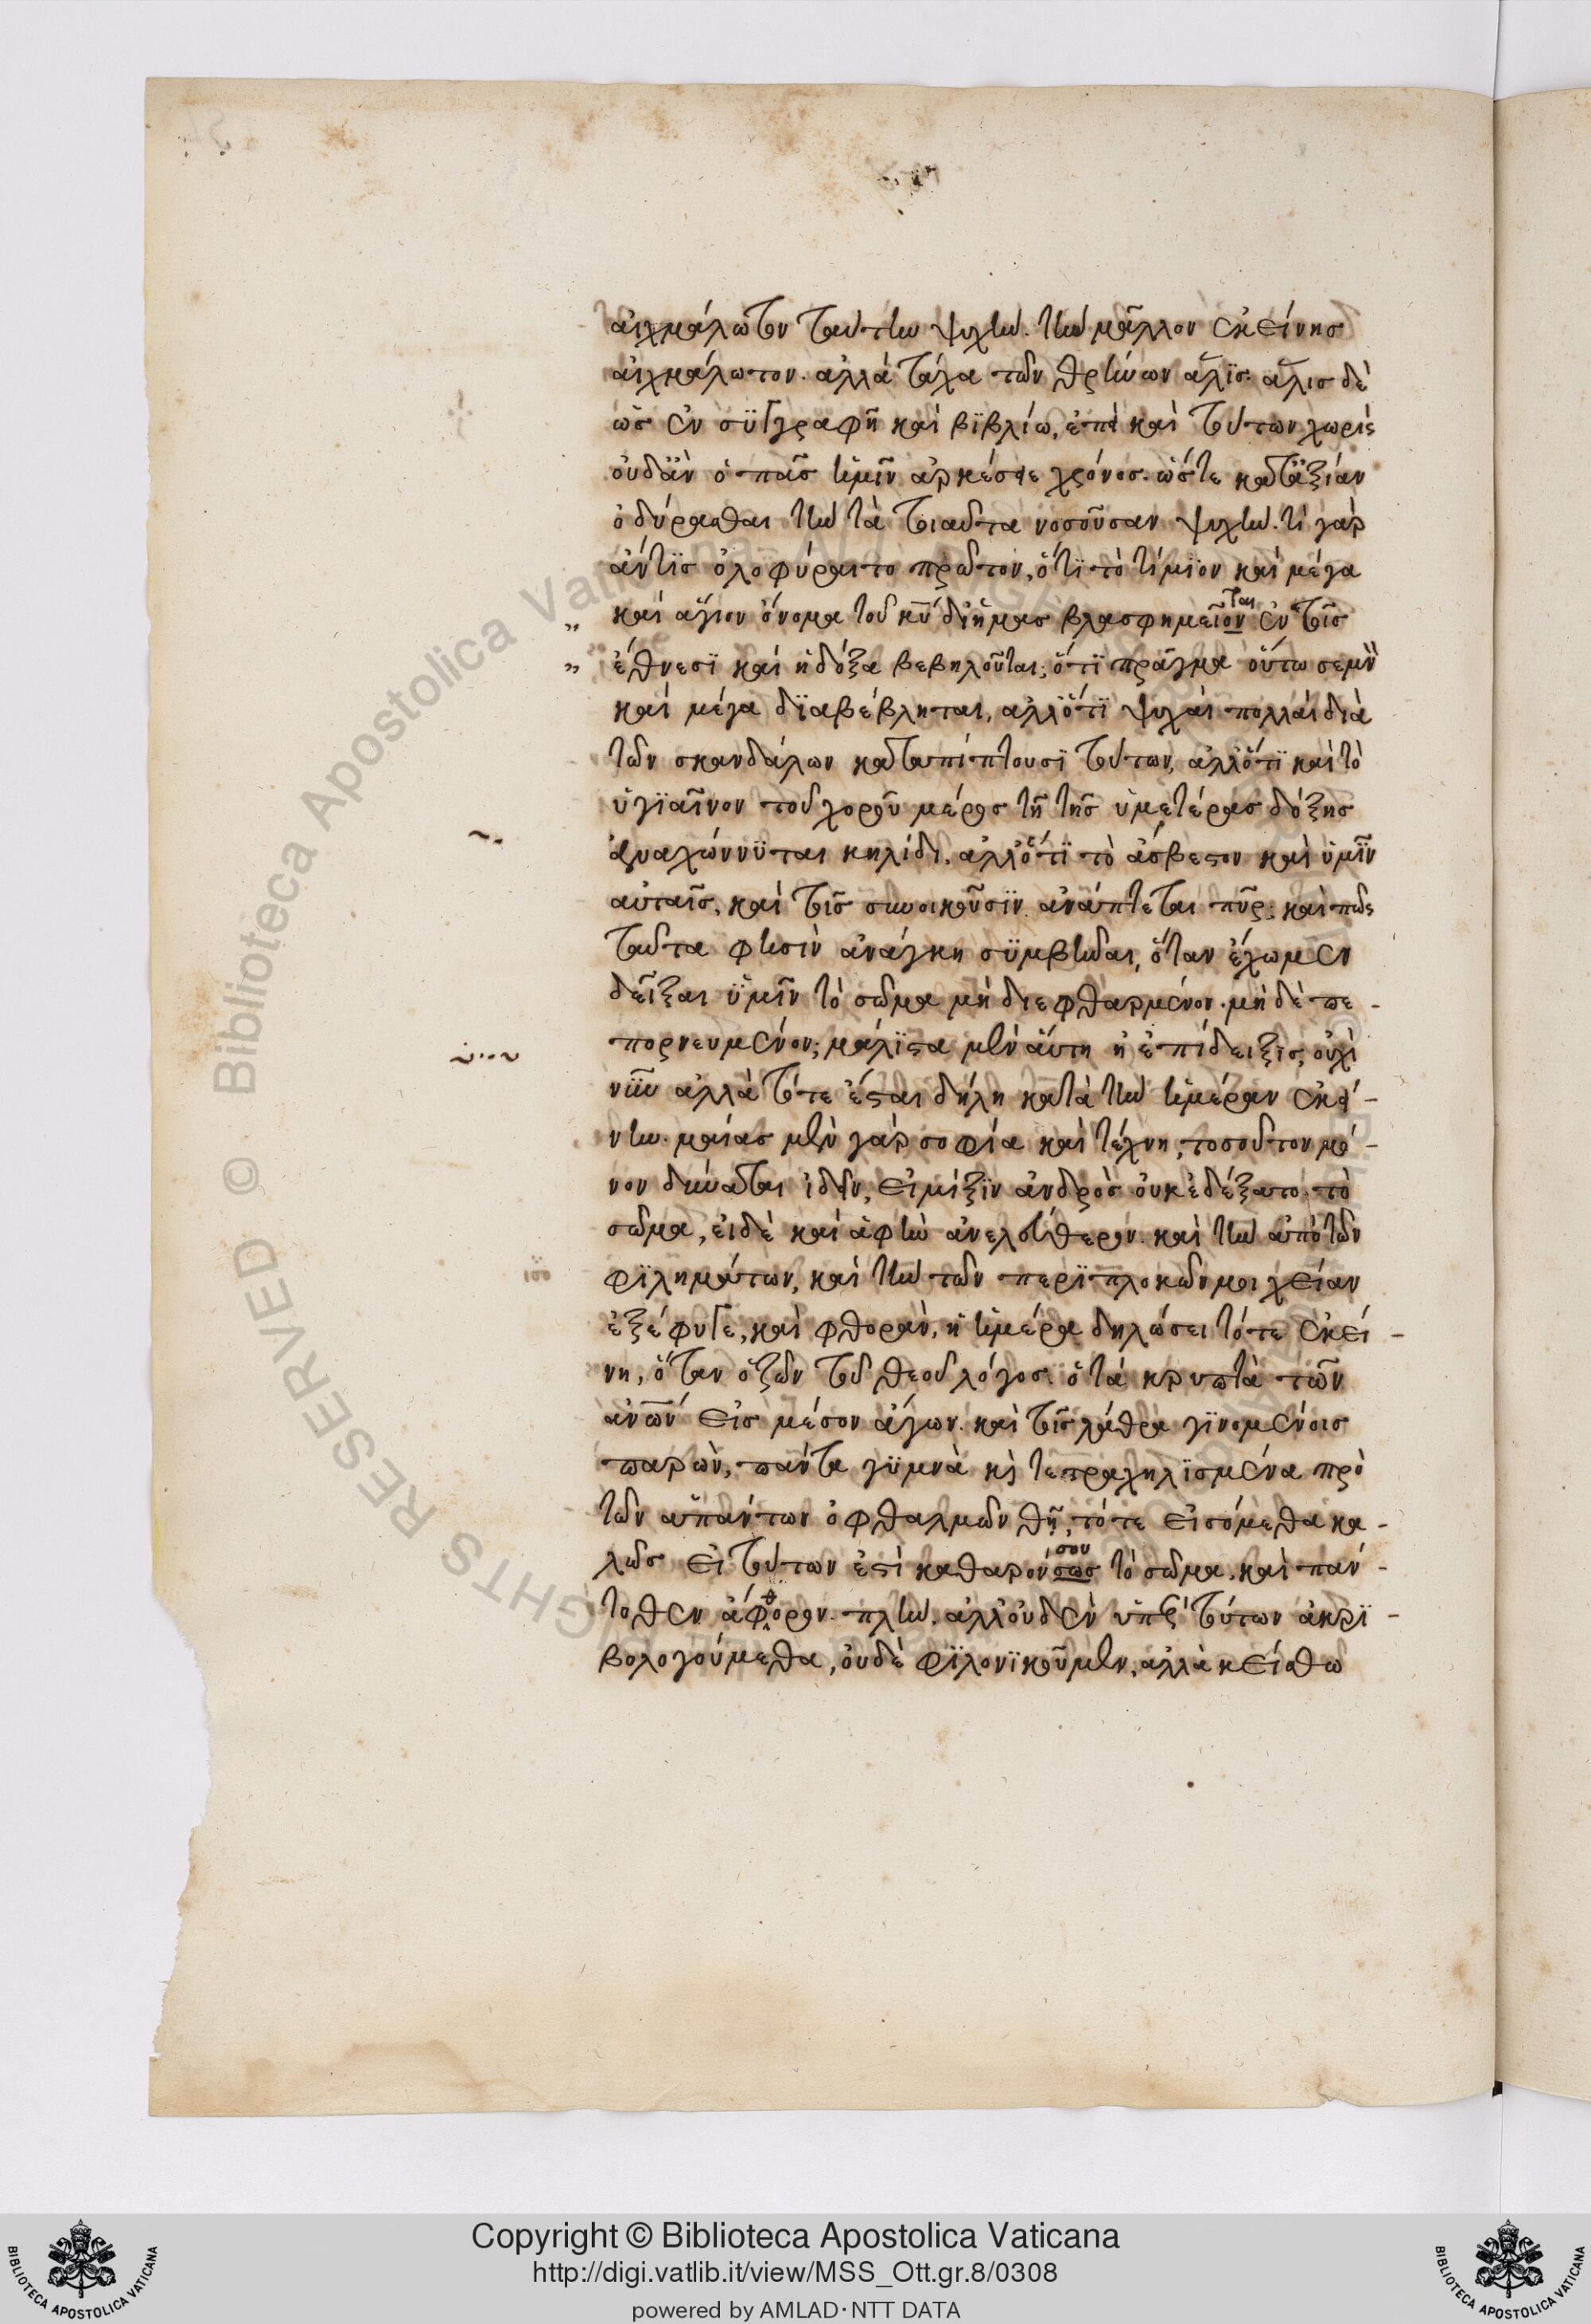 αἰχμάλωτον ταύτην ψυχὴν. τὴν μᾶλλον ἐκείνης
αἰχμάλωτον. ἀλλὰ τάχα τῶν θρήνων ἅλϊς. ἅλις δὲ
ὡς ἐν συγγραφῆ καὶ βϊβλίω, ἐπεὶ καὶ τούτων χωρὶς
οὐδ' ἂν ὁ πᾶς ἡμῖν ἀρκέσειε χρόνος. ὥστε κατ' ἀξίαν
ὀδύρασθαι τὴν τὰ τοιαῦτα νοσοῦσαν ψυχὴν. τί γὰρ
ἄν τϊς ὀλοφύραιτο πρῶτον, ὅτϊ τὸ τίμϊον καὶ μέγα
„ καὶ ἅγιον ὄνομα τοῦ κυ̅ δι' ἡμᾶς βλασφημεῖον ται ἐν τοῖς
„ ἔθνεσϊ καὶ ἡ δόξα βεβηλοῦται; ὅτϊ πρᾶγμα οὕτω σεμνὸν
καὶ μέγα δϊαβέβληται, ἀλλ' ὅτϊ ψυχαὶ πολλαὶ διὰ
τῶν σκανδάλων καταπίπτουσϊ τούτων, ἀλλ' ὅτϊ καὶ τὸ
ὑγϊαῖνον τοῦ χοροῦ μέρος τῆ τῆς ὑμετέρας δόξης
ἀναχώννϋται κηλίδι, ἀλλ' ὅτϊ τὸ ἄσβεστον καὶ ὑμῖν
αὐταῖς, καὶ τοῖς συνοικοῦσϊν ἀνάπτεται πῦρ; καὶ πῶς
ταῦτα φησὶν ἀνάγκη συμβῆναι, ὅταν ἔχωμεν
δεῖξαι ὑμῖν τὸ σῶμα μὴ διεφθαρμένον. μὴ δὲ πε -
πορνευμένον; μάλϊστα μὲν αὕτη ἡ ἐπίδειξϊς, οὐχὶ
νῦν ἀλλὰ τότε ἔσται δήλη κατὰ τὴν ἡμέραν ἐκεί -
νην. μαίας μὲν γὰρ σοφία καὶ τέχνη, τοσοῦτον μό -
νον δύναται ἰδεῖν, εἰ μίξϊν ἀνδρὸς οὐκ ἐδέξατο. τὸ
σῶμα, εἰ δὲ καὶ ἀφὴν ἀνελεύθερον. καὶ τὴν ἀπὸ τῶν
φϊλημάτων, καὶ τὴν τῶν περϊπλοκῶν μοιχείαν
ἐξέφυγε, καὶ φθορὰν, ἡ ἡμέρα δηλώσει τότε ἐκεί -
νη, ὅταν ὁ ζῶν τοῦ θεοῦ λόγος. ὁ τὰ κρυπτὰ τῶν
ἀν̅ω̅ν εἰς μέσον ἄγων. καὶ τοῖς λάθρα γϊνομένοις
παρὼν, πάντα γϋμνὰ κ̀ τετραχηλϊσμένα πρὸ
τῶν ἁπάντων ὀφθαλμῶν θῆ, τότε εἰσόμεθα κα -
λῶς εἰ τούτων ἐστὶ καθαρόν σως σου τὸ σῶμα. καὶ παν -
τοθεν ἄφθορον. πλὴν, ἀλλ' οὐδὲν ὑπὲρ τούτων ἀκρϊ -
βολογούμεθα, οὐδὲ φϊλονϊκοῦμεν, ἀλλὰ κείσθω
Copyright © Biblioteca Apostolica Vaticana
http://digi.vatlib.it/view/MSS_Ott.gr.8/0308
powered by AMLAD·NTT DATA